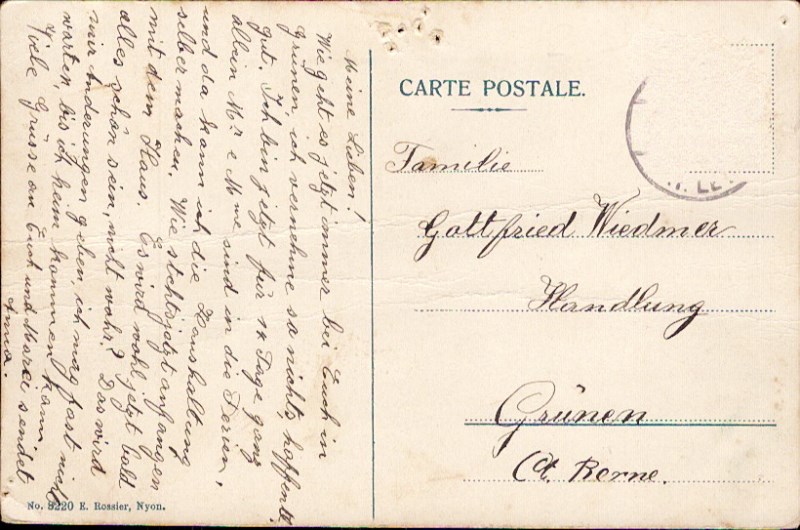 Meine Lieben!
Wie geht es jetzt immer bei Euch in
Grünen, ich vernehme so nichts, hoffentl.
gut. Ich bin jetzt für 14 Tage ganz
allein Mr e Mme sind in die Ferien,
und da kann ich die Haushaltung
selber machen. Wie steht's jetzt anfangen
mit dem Haus. Es wird wohl jetzt bald
alles schön sein, nicht wahr? Das wird
mir Änderungen geben, ich mag fast nicht
warten, bis ich heim kommen kann
Viele Grüsse an Euch und Marei sendet
Anna.
No. 8220 E. Rossier, Nyon.
CARTE POSTALE.
Familie
Gottfried Wiedmer
Handlung
Grünen
Ct. Berne.